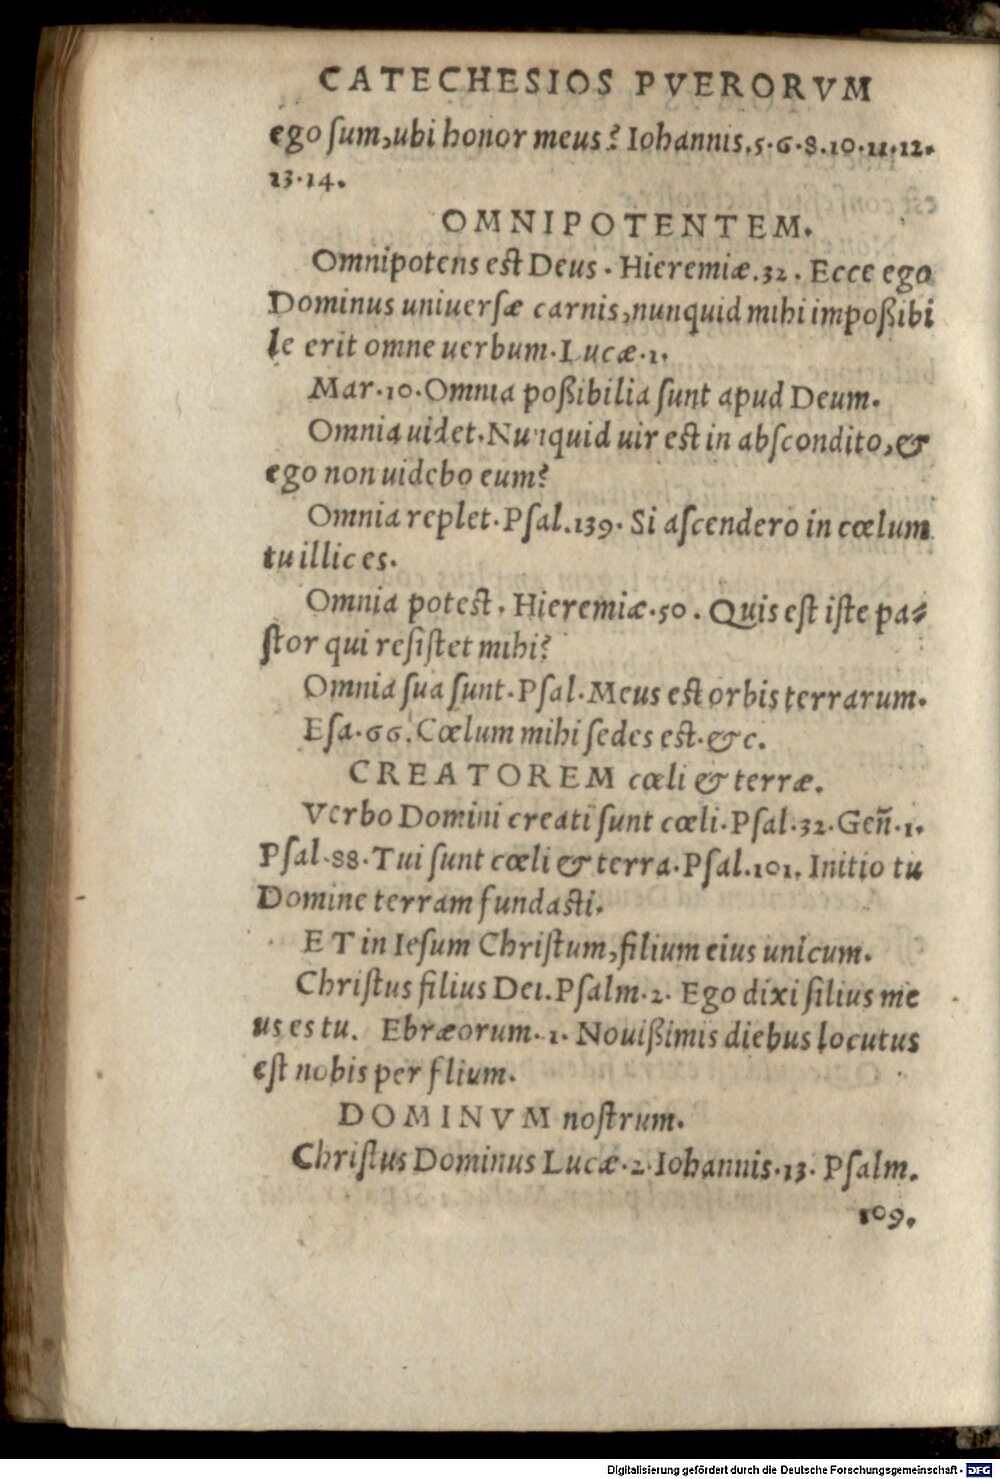 CATECHESIOS PVERORVM
ego ſum,ubi honor meus? Iohannis.5.6.8.10.11.12.
13.14.
OMNIPOTENTEM.
Omnipotens est Deus. Hieremiæ.32. Ecce ego
Dominus uniuerſæ carnis,nunquid mihi impoßibi
le erit omne uerbum.Lucæ.1.
Mar.10.Omnia poßibilia ſunt apud Deum.
Omnia uidet.Nunquid uir est in abſcondito,&
ego non uidebo eum?
Omnia replet.Pſal.139. Si aſcendero in cœlum
tu illic es.
Omnia potest. Hieremiæ.50. Quis eſt iſte pa=
ſtor qui reſiſtet mihi?
Omnia ſua ſunt.Pſal.Meus est orbis terrarum.
Eſa.66.Cœlum mihi ſedes est.&c.
CREATOREM cœli & terræ.
Verbo Domini creati ſunt cœli.Pſal.32.Geñ.1.
Pſal.88.Tui ſunt cœli & terra.Pſal.101. Initio tu
Domine terram fundasti.
ET in Ieſum Chriſtum,filium eius unicum.
Chriſtus filius Dei.Pſalm.2. Ego dixi filius me
us es tu. Ebræorum.1. Nouißimis diebus locutus
eſt nobis per flium.
DOMINVM noſtrum.
Chriſtus Dominus Lucæ.2.Iohannis.13. Pſalm.
109.
Digitalisierung gefördert durch die Deutsche Forschungsgemeinschaft - DFG